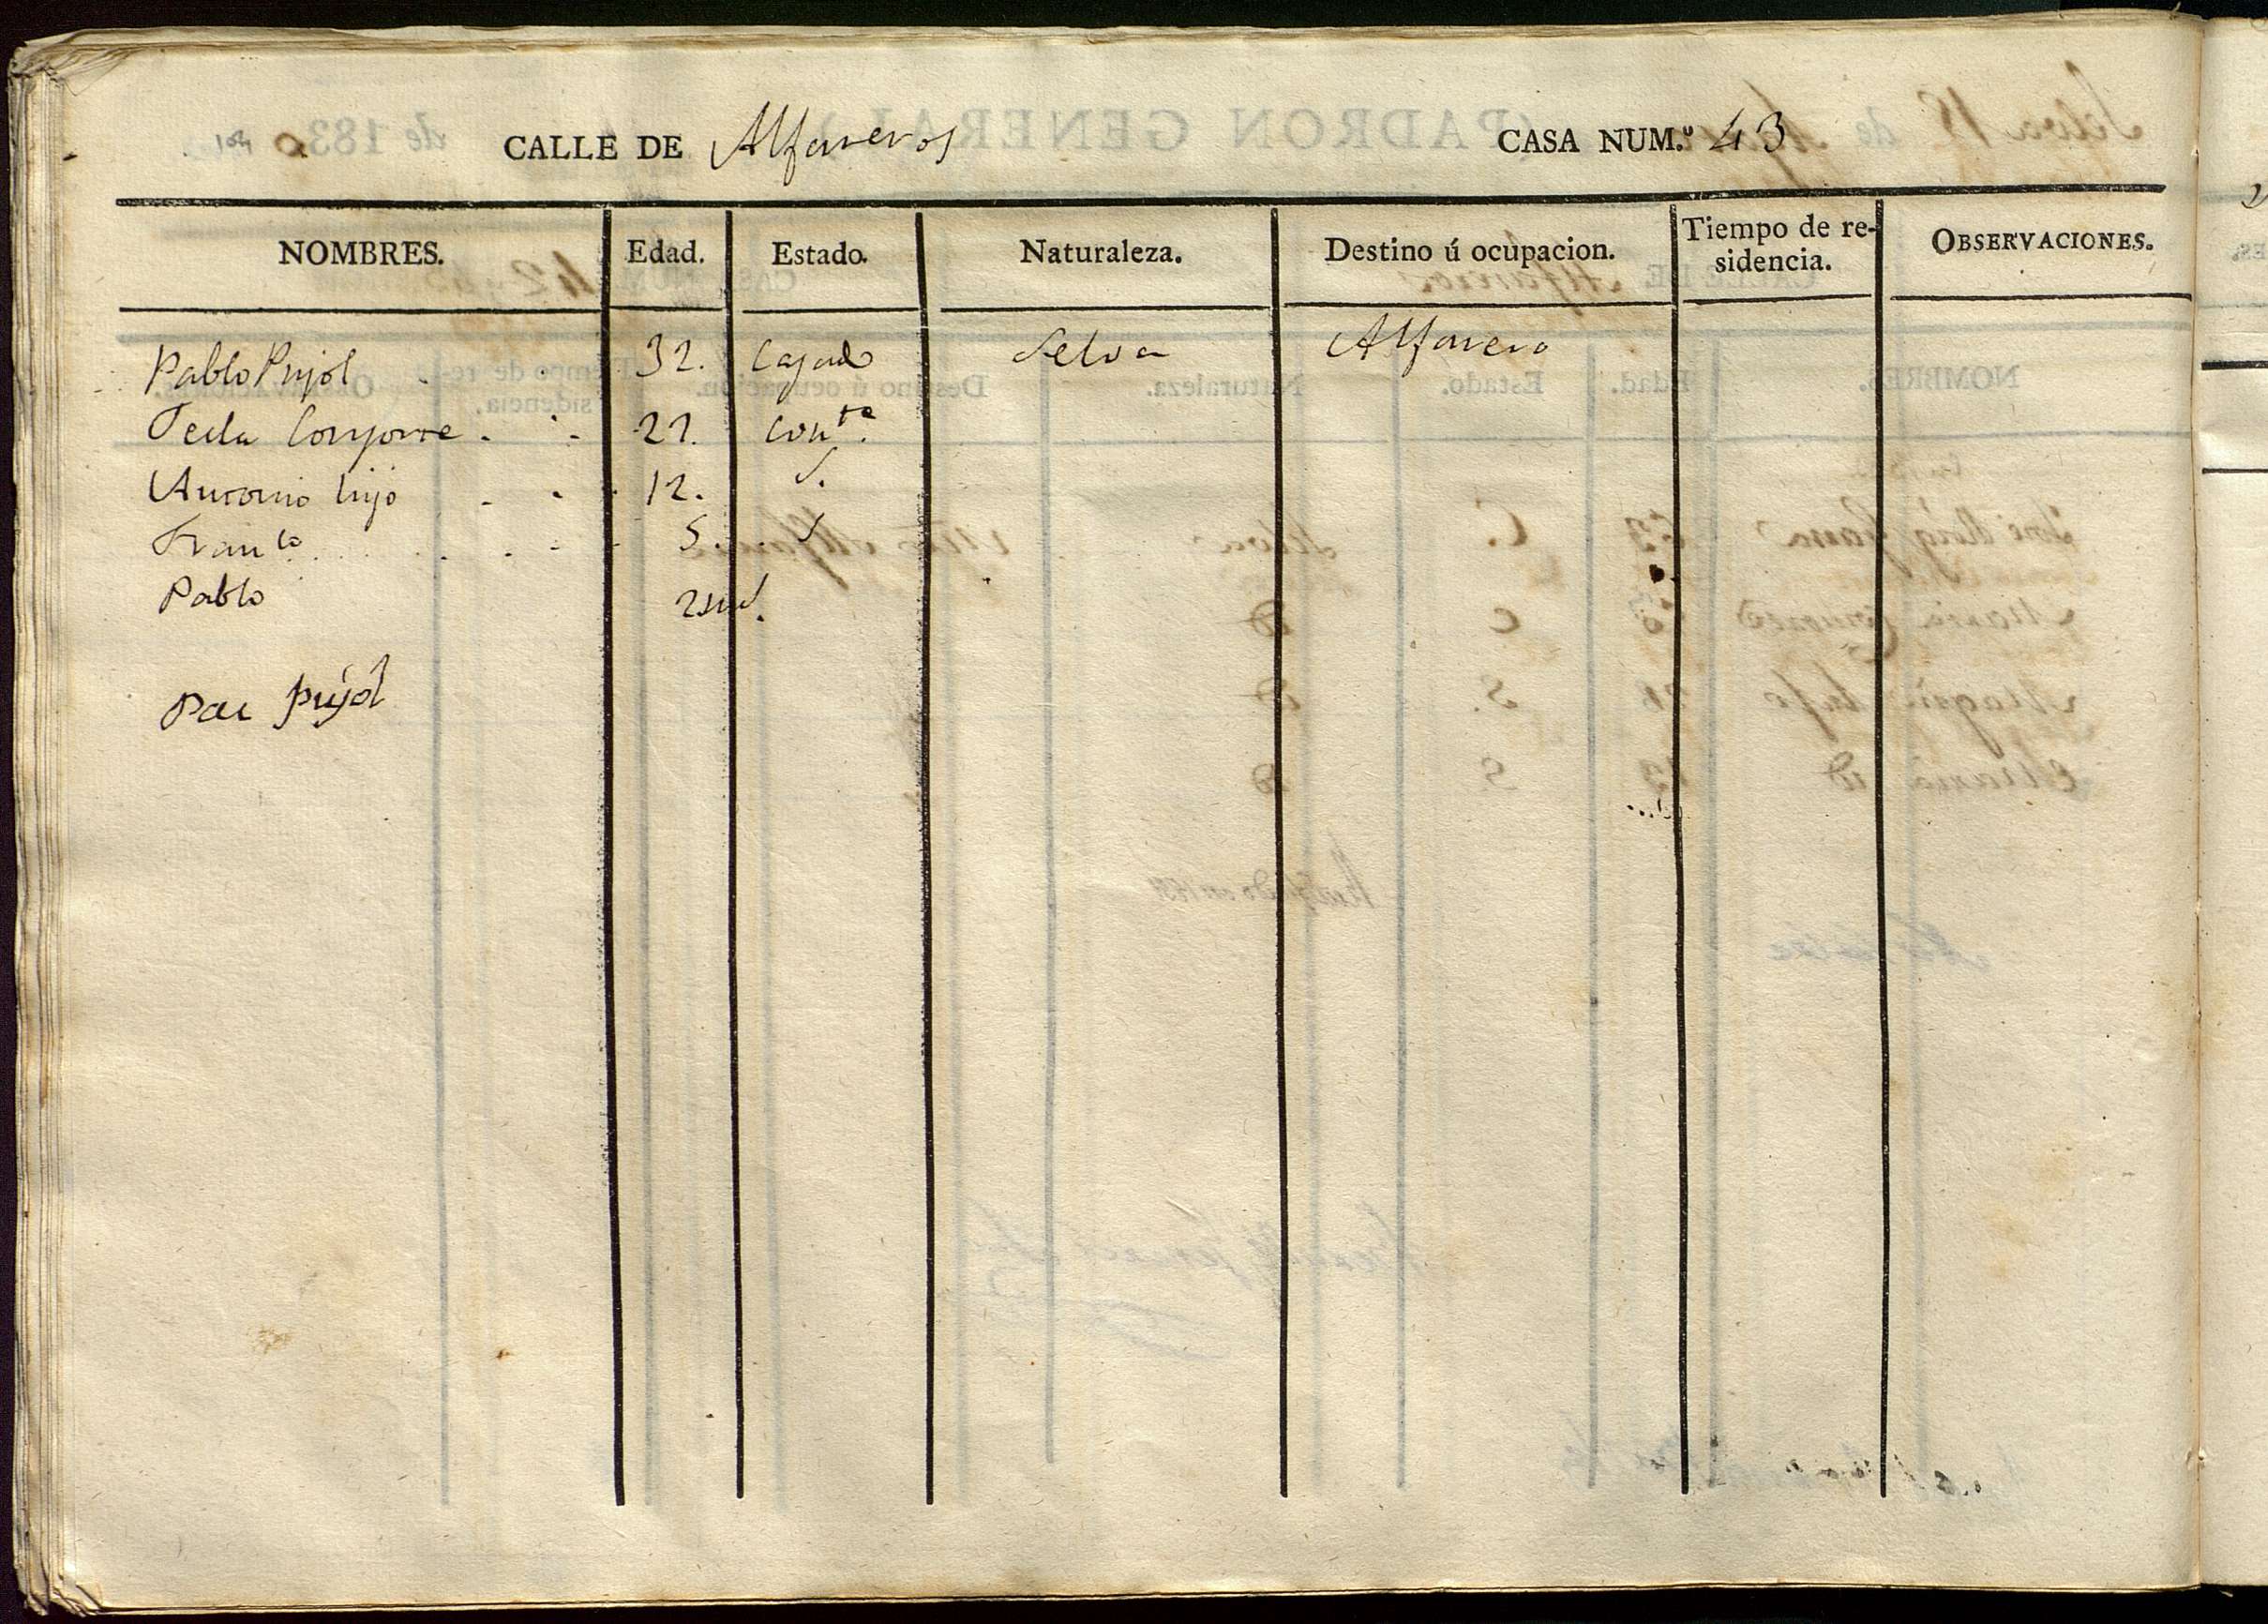 CALLE DE Alfareros CASA NUM.º 43
NOMBRES. Edad. Estado. Naturaleza. Destino ú ocupacion. Tiempo de re-sidencia. OBSERVACIONES.
Pablo Pujol 32. Casado Selva Alfarero
Tecla 22. Con.te
Antonio hijo 12. S.
Fran.co 5. S
Pablo S.
Pau pujol